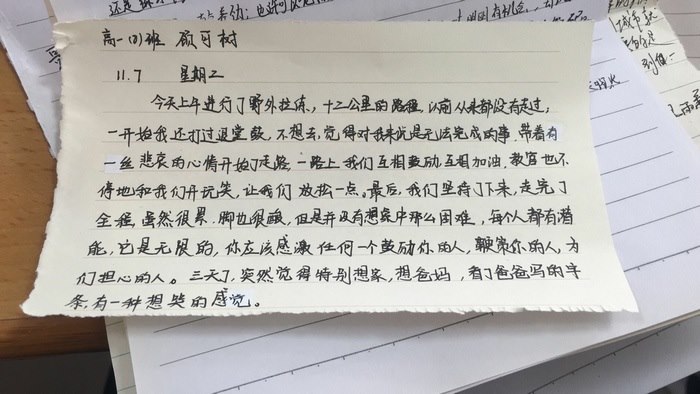 高一(8)班 顾可树
11.7 星期二
今天上午进行了野外拉练,十二公里的路程,以前从来都没有走过,
一开始我还打过退堂鼓,不想去,觉得对我来说是无法完成的事,带着有
一丝悲哀的心情开始了走路,一路上我们互相鼓励,互相加油,教官也不
停地和我们开玩笑,让我们放松一点。最后,我们坚持了下来,走完了
全程,虽然很累,脚也很酸,但是并没有想象中那么困难,每个人都有潜
能,它是无限的,你应该感激任何一个鼓励你的人,鞭策你的人,为
们担心的人。三天了,突然觉得特别想家,想爸妈,看了爸爸写的半
条,有一种想哭的感觉。